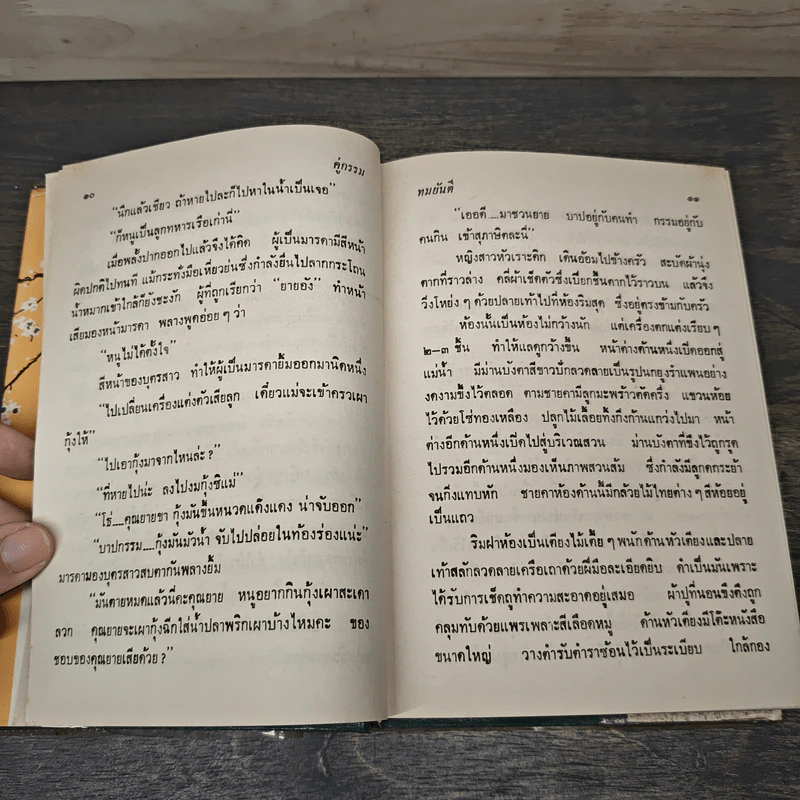 ๑๐
คู่กรรม
“นึกแล้วเชียว ถ้าหายไปละก็ไปหาในน้ำเป็นเจอ”
“ก็หนูเป็นลูกทหารเรือเก่านี่”
เมื่อพลั้งปากออกไปแล้วจึงได้คิด ผู้เป็นมารดามีสีหน้า
ผิดปกติไปทันที แม้กระทั่งมือเหี่ยวย่นซึ่งกำลังยื่นไปลากกระโถน
น้ำหมากเข้าใกล้ก็ยังชะงัก ผู้ที่ถูกเรียกว่า “ยายอัง” ทำหน้า
เสียมองหน้ามารดา พลางพูดอ่อย ๆ ว่า
“หนูไม่ได้ตั้งใจ”
สีหน้าของบุตรสาว ทำให้ผู้เป็นมารดายิ้มออกมานิดหนึ่ง
“ไปเปลี่ยนเครื่องแต่งตัวเสียลูก เดี๋ยวแม่จะเข้าครัวเผา
กุ้งให้”
“ไปเอากุ้งมาจากไหนล่ะ ?”
“ที่หายไปน่ะ ลงไปงมกุ้งซิแม่”
“โธ่.....คุณยายขา กุ้งมันขึ้นหนวดแด๊งแดง น่าจับออก”
“บาปกรรม.....กุ้งมันมัวน้ำ จับไปปล่อยในท้องร่องแน่ะ”
มารดามองบุตรสาวสบตากันพลางยิ้ม
“มันตายหมดแล้วนี่คะคุณยาย หนูอยากกินกุ้งเผาสะเดา
ลวก คุณยายจะเผากุ้งฉีกใส่น้ำปลาพริกเผาบ้างไหมคะ ของ
ชอบของคุณยายเสียด้วย ?”
ทมยันตี
๑๑
“เออดี.....มาชวนยาย บาปอยู่กับคนทำ กรรมอยู่กับ
คนกิน เข้าสุภาษิตละนี่”
หญิงสาวหัวเราะคิก เดินอ้อมไปข้างครัว สะบัดผ้านุ่ง
ตากที่ราวล่าง คลี่ผ้าเช็ดตัวซึ่งเปียกชื้นตากไว้ราวบน แล้วจึง
วิ่งโหย่ง ๆ ด้วยปลายเท้าไปที่ห้องริมสุด ซึ่งอยู่ตรงข้ามกับครัว
ห้องนั้นเป็นห้องไม่กว้างนัก แต่เครื่องตกแต่งเรียบ ๆ
๒-๓ ชิ้น ทำให้แลดูกว้างขึ้น หน้าต่างด้านหนึ่งเปิดออกสู่
แม่น้ำ มีม่านบังตาสีขาวปักลวดลายเป็นรูปนกยูงรำแพนอย่าง
งดงามขึงไว้ตลอด ตามชายคามีลูกมะพร้าวตัดครึ่ง แขวนห้อย
ไว้ด้วยโซ่ทองเหลือง ปลูกไม้เลื้อยทิ้งกิ่งก้านแกว่งไปมา หน้า
ต่างอีกด้านหนึ่งเปิดไปสู่บริเวณสวน ม่านบังตาที่ขึงไว้ถูกรูด
ไปรวมอีกด้านหนึ่งมองเห็นภาพสวนส้ม ซึ่งกำลังมีลูกดกระย้า
จนกิ่งแทบหัก ชายคาห้องด้านนี้มีกล้วยไม้ไทยต่าง ๆ สีห้อยอยู่
เป็นแถว
ริมฝาห้องเป็นเตียงไม้เตี้ย ๆ พนักด้านหัวเตียงและปลาย
เท้าสลักลวดลายเครือเถาด้วยฝีมือละเอียดยิบ ดำเป็นมันเพราะ
ได้รับการเช็ดถูทำความสะอาดอยู่เสมอ ผ้าปูที่นอนขึงตึงถูก
คลุมทับด้วยแพรเพลาะสีเลือดหมู ด้านหัวเตียงมีโต๊ะหนังสือ
ขนาดใหญ่ วางตำรับตำราซ้อนไว้เป็นระเบียบ ใกล้กอง